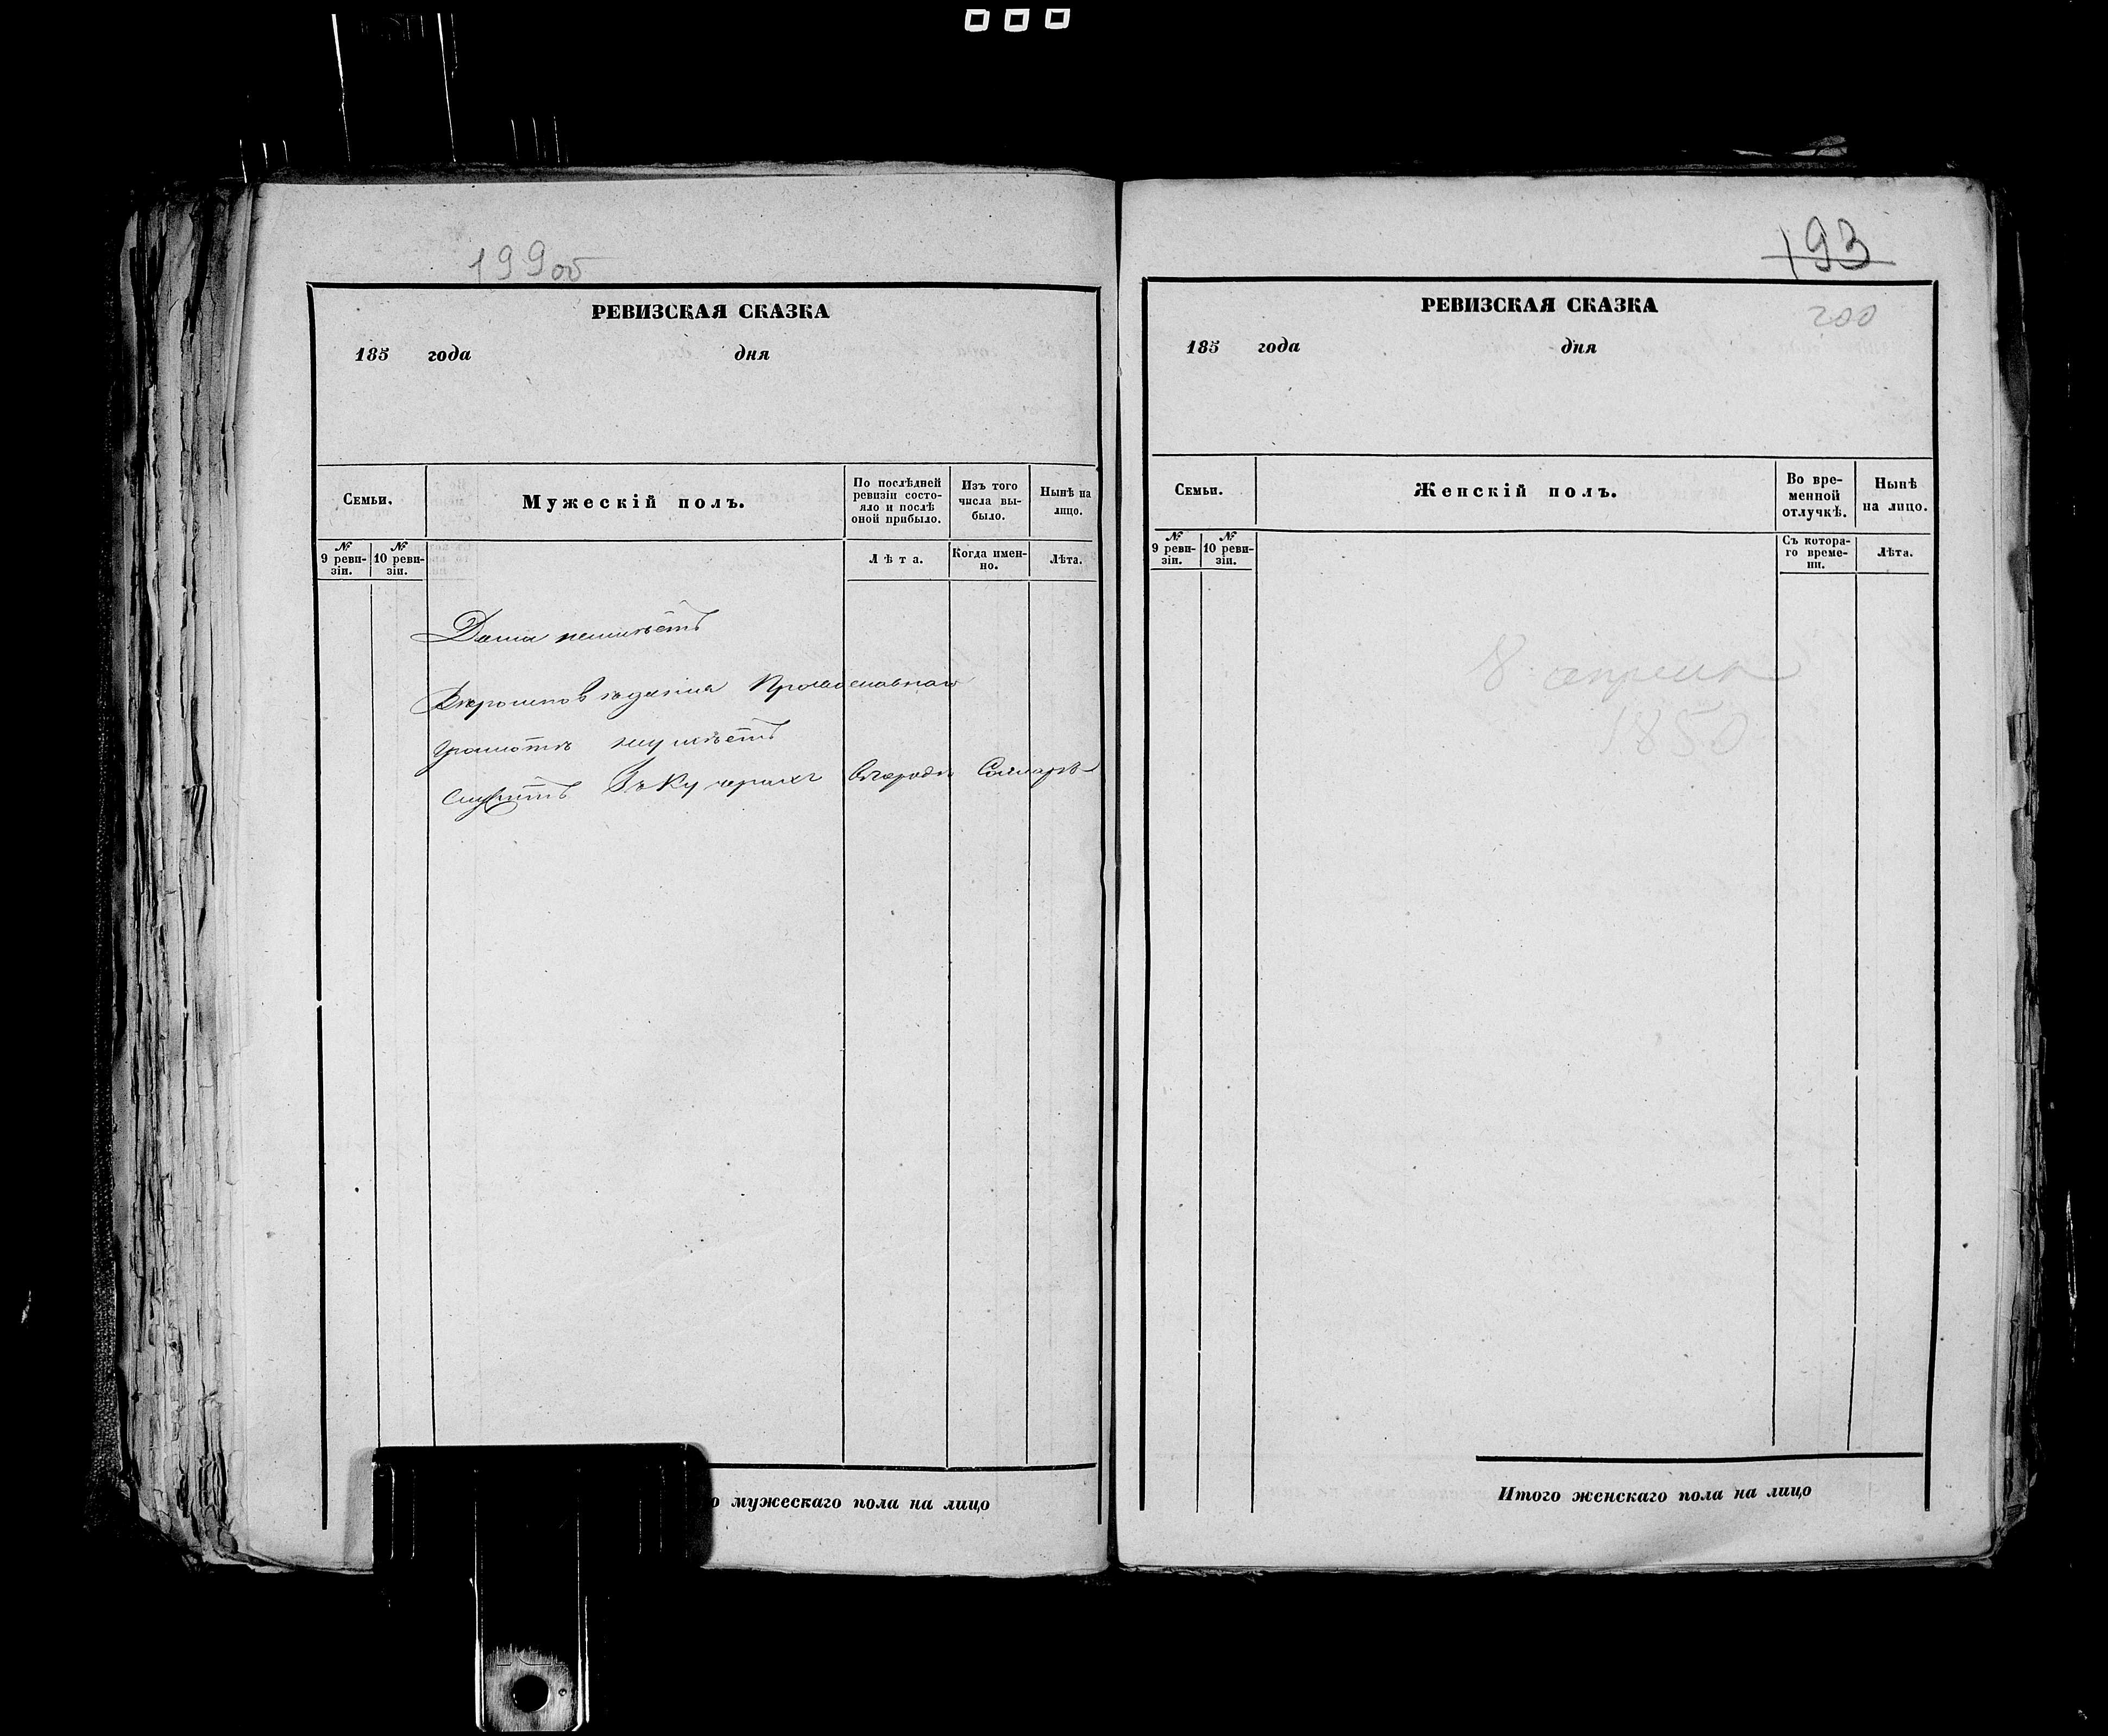 199об
РЕВИЗСКАЯ СКАЗКА
185 года дня
Семьи.
Мужескій полъ.
По послѣдней ревизіи состо-
яло и послѣ
оной прибыло.
Изъ того
числа вы-
было.
Нынѣ на
лицо.
№
9 реви-
зіи.
№
10 реви-
зіи.
Лѣта.
Когда имен-
но.
Лѣта.
Дома неимѣетъ
Вѣроисповѣданія Православнаго
Грамотѣ неумѣетъ
Служитъ Въ Кучерахъ Вгородѣ Самарѣ
о мужескаго пола на лицо
193
200
РЕВИЗСКАЯ СКАЗКА
185 года дня
Семьи.
Женскій полъ.
Во вре-
менной
отлучкѣ.
Нынѣ
на лицо.
№
9 реви-
зіи.
№
10 реви-
зіи.
Съ котора-
го време-
ни.
Лѣта.
8 апреля
1850
Итого женскаго пола на лицо